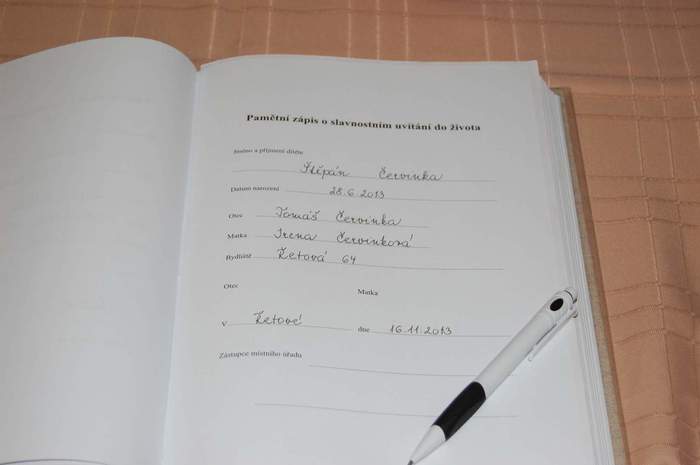 Pamětní zápis o slavnostním uvítání do života
Jméno a příjmení dítěte
Štěpán Červinka
Datum narození 28.6.2013
Otec Tomáš Červinka
Matka Irena Červinková
Bydliště Řetová 64
Otec Matka
V Řetové dne 16.11.2013
Zástupce místního úřadu